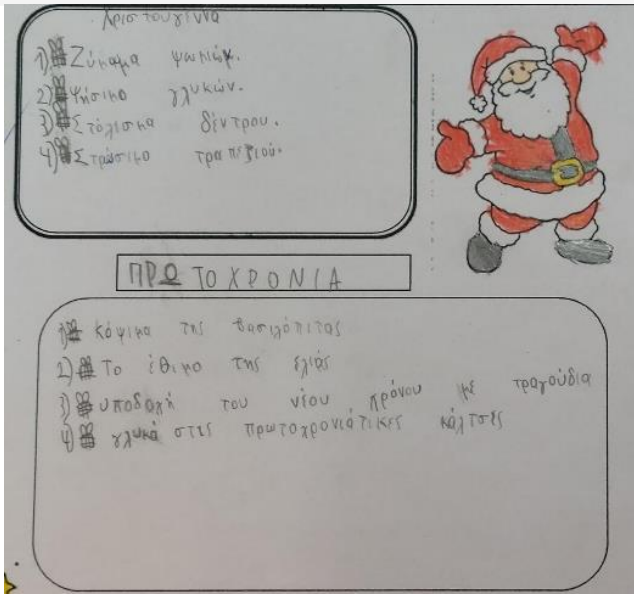 Χριστούγεννα
1) Ζύμωμα ψωμιών.
2) Ψήσιμο γλυκών.
3) Στόλισμα δέντρου.
4) Στρώσιμο τραπεζιού.
ΠΡΩΤΟΧΡΟΝΙΑ
1) κόψιμο της βασιλόπιτας
2) Το έθιμο της ελιάς
3) υποδοχή του νέου χρόνου με τραγούδια
4) γλυκά στις πρωτοχρονιάτικες κάλτσες